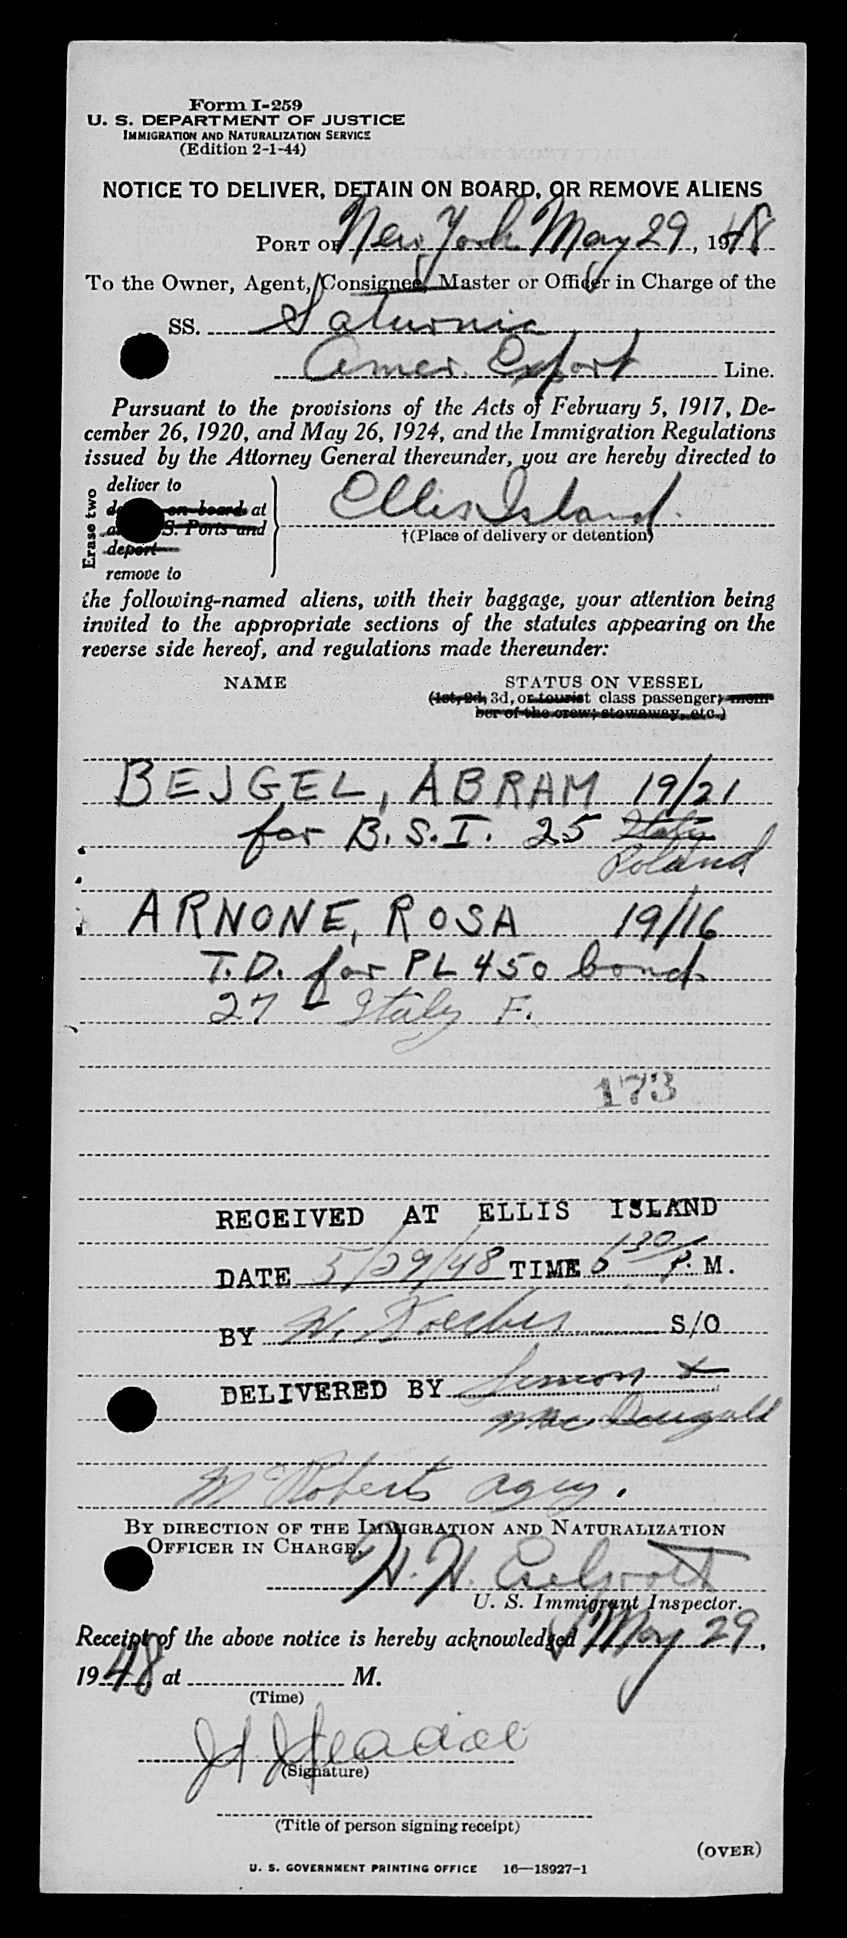 Form I-259
U. S. DEPARTMENT OF JUSTICE
IMMIGRATION AND NATURALIZATION SERVICE
(Edition 2-1-44)
NOTICE TO DELIVER, DETAIN ON BOARD, OR REMOVE ALIENS
PORT OF New York May 29, 1948
To the Owner, Agent, Consignee, Master or Officer in Charge of the
SS. Saturnia
Amer. Export Line.
Pursuant to the provisions of the Acts of February 5, 1917, De-
cember 26, 1920, and May 26, 1924, and the Immigration Regulations
issued by the Attorney General thereunder, you are hereby directed to
Erase two
deliver to
on board at
S. Ports and
deport
remove to
Ellis Island.
†(Place of delivery or detention)
the following-named aliens, with their baggage, your attention being
invited to the appropriate sections of the statutes appearing on the
reverse side hereof, and regulations made thereunder:
NAME STATUS ON VESSEL
(1st, 2d, 3d, or tourist class passenger; mem-
ber of the crew; stowaway, etc.)
BEJGEL, ABRAM 19/21
for B.S.I. 25 Italy
Poland
ARNONE, ROSA 19/16
T.D. for PL 450 bond
27 - Italy F.
173
RECEIVED AT ELLIS ISLAND
DATE 5/29/48 TIME 6 30 P. M.
BY H. S/O
DELIVERED BY Simon +
MacDougall
McRoberts agcy.
BY DIRECTION OF THE IMMIGRATION AND NATURALIZATION
OFFICER IN CHARGE.
U. S. Immigrant Inspector.
Receipt of the above notice is hereby acknowledged May 29,
1948, at M.
(Time)
(Signature)
(Title of person signing receipt)
(OVER)
U. S. GOVERNMENT PRINTING OFFICE 16—18927-1